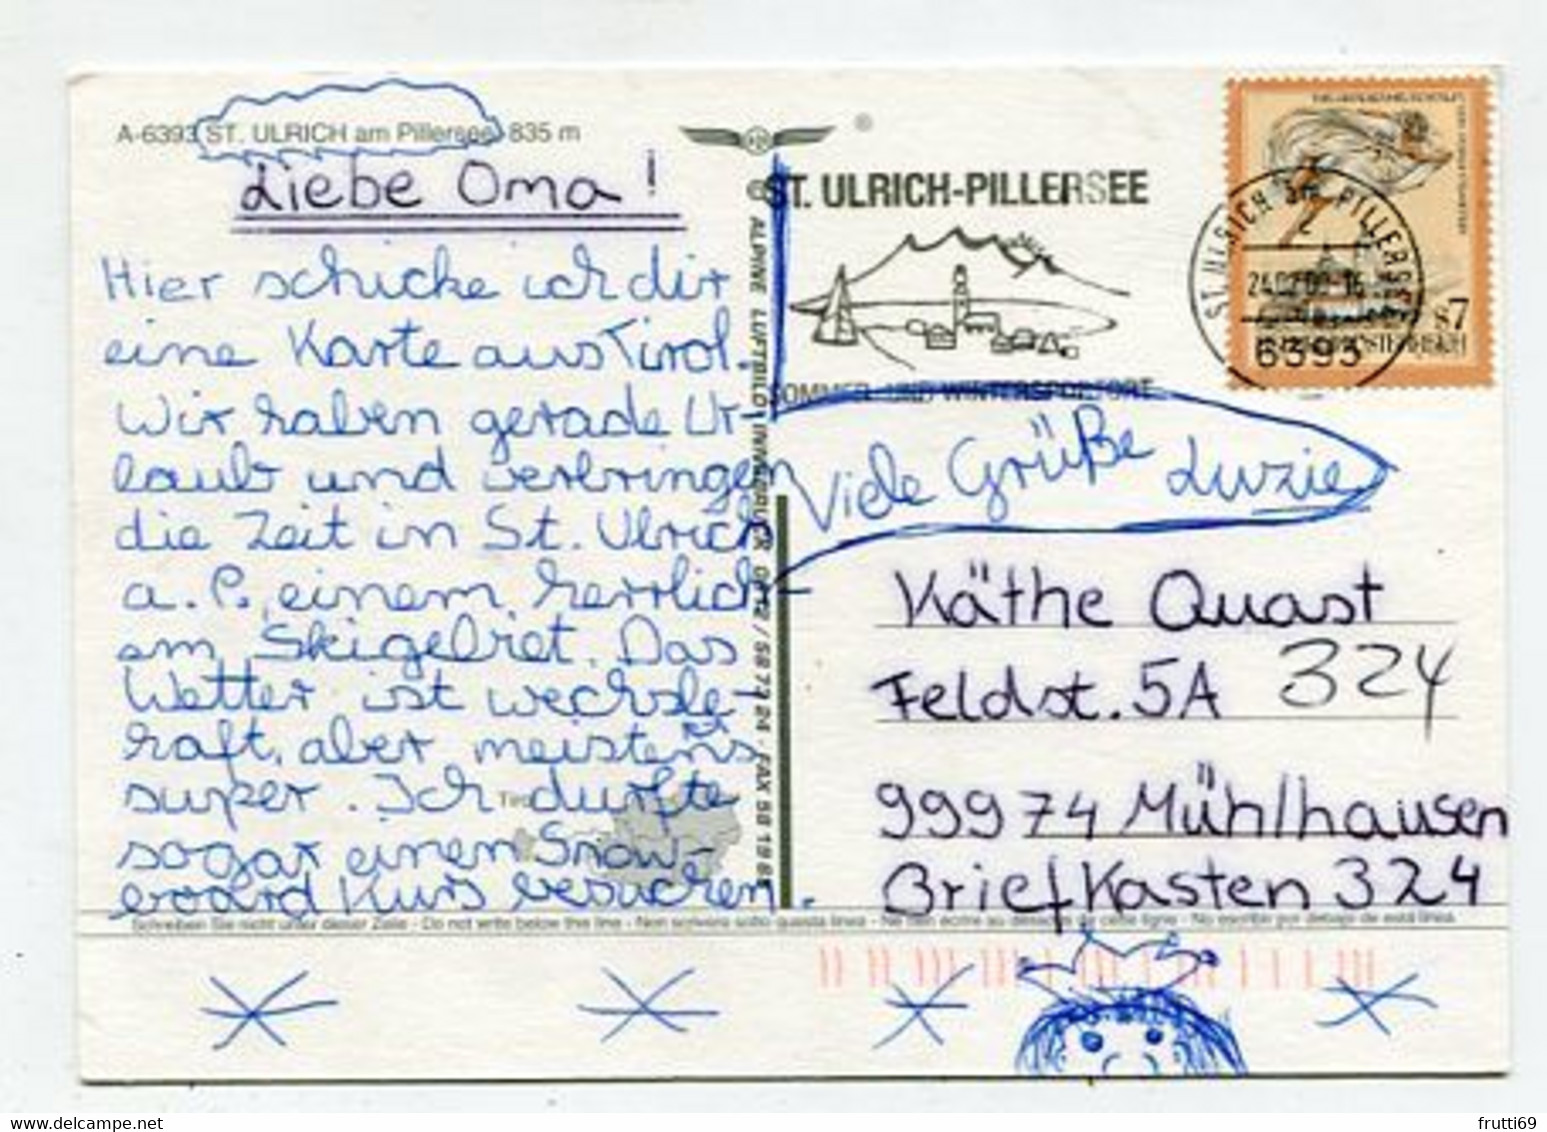 A-6393 ST. ULRICH am Pillersee, 835 m
Liebe Oma!
Hier schicke ich dir
eine Karte aus Tirol.
Wir haben gerade Ur-
laub und verbringen
die Zeit in St. Ulrich
a. P., einem herrlich-
em Skigebiet. Das
Wetter ist wechsle-
haft, aber meistens
super. Ich durfte
sogar einen Snow-
board Kurs besuchen.
Tirol
© ALPINE LUFTBILD INNSBRUCK 0512 / 58 77 24 - FAX 58 19 85
ST. ULRICH-PILLERSEE
SOMMER- UND WINTERSPORTORT
ST. ULRICH am PILLERSEE
6393
S 7
Viele Grüße Luzie
Käthe Quast
Feldst. 5A 324
99974 Mühlhausen
Briefkasten 324
Schreiben Sie nicht unter dieser Zeile - Do not write below this line - Non scrivere sotto questa linea - Ne rien écrire au dessous de cette ligne - No escribir por debajo de está línea
frutti69